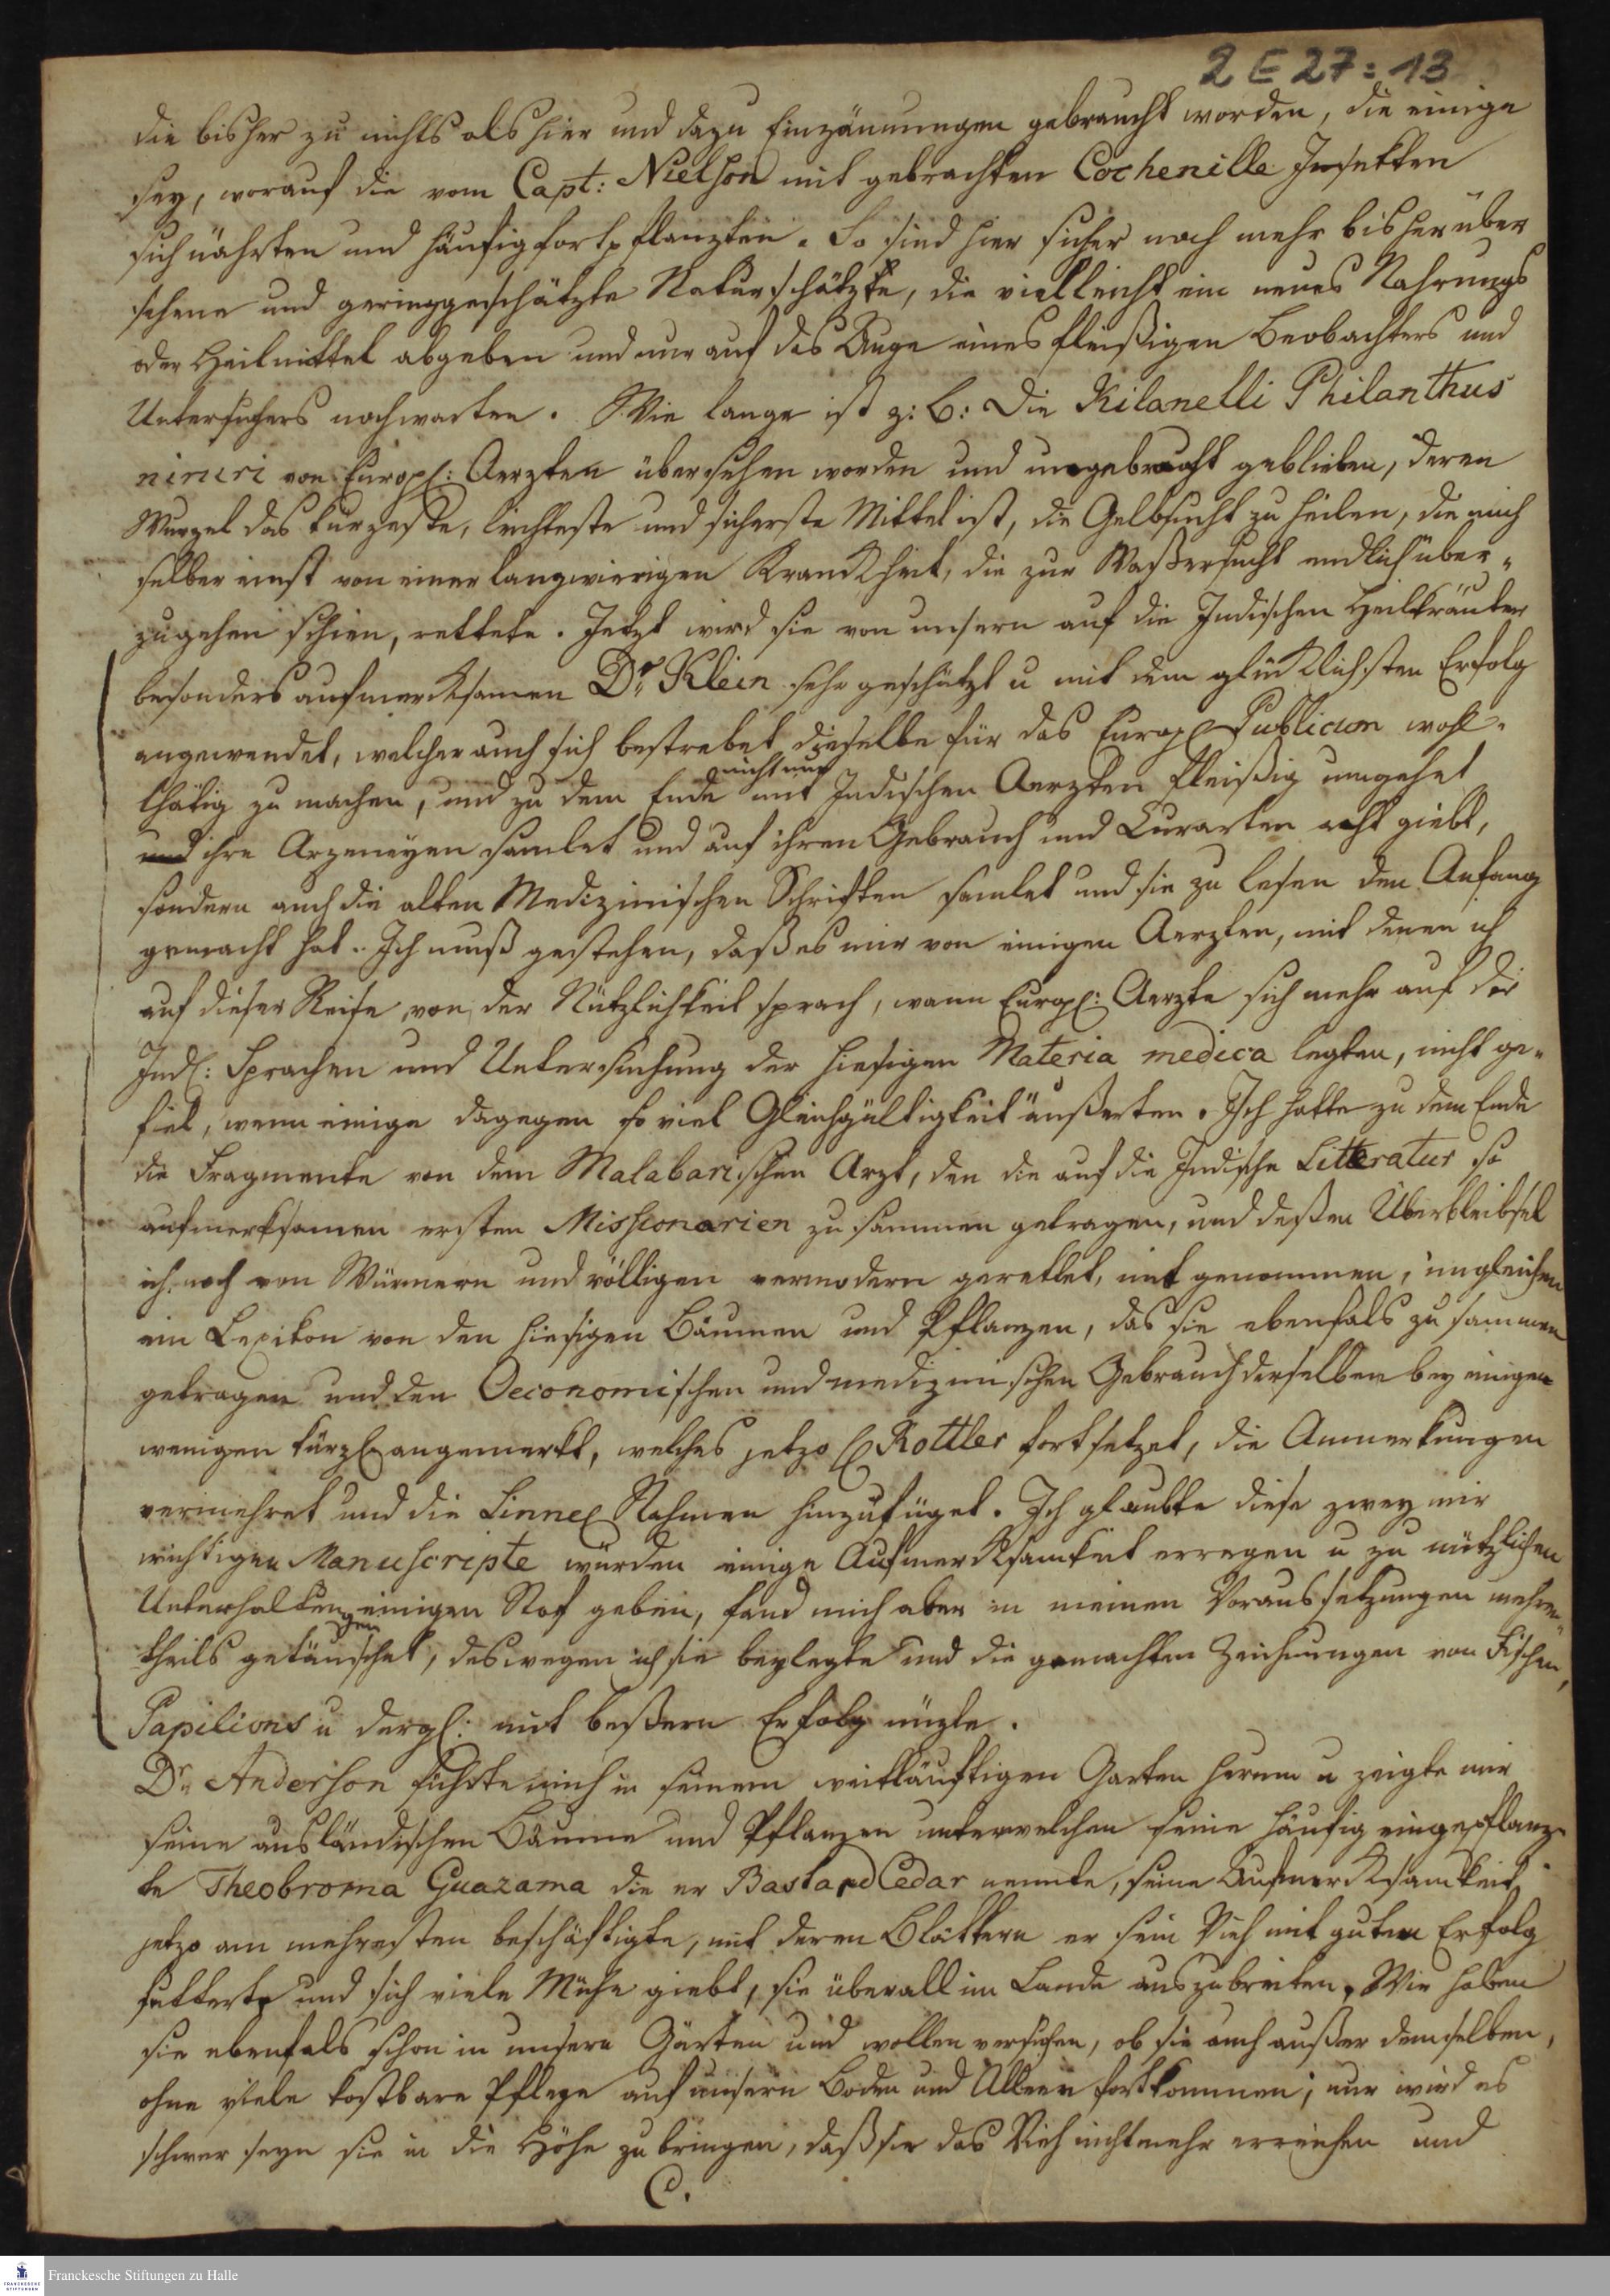 2 E 27 : 13
die bisher zu nichts als hier und dazu Einzäunungen gebraucht worden, die einige
sey, worauf die vom Capt: Nielson mit gebrachten Cochenille Insekten
sich nährten und häufig fortpflanzten. So sind hier sicher noch mehr bisher über
sehene und geringgeschätzte Naturschätze, die vielleicht ein neues Nahrungs
oder Heilmittel abgeben und nur auf das Auge eines fleißigen Beobachters und
Untersuchers noch warten. Wie lange ist z: B: die Kilanelli Philanthus
niruri von Europ: Aerzten übersehen worden und ungebraucht geblieben, deren
Wurzel das kürzeste, leichteste und sicherste Mittel ist, die Gelbsucht zu heilen, die mich
selber einst von einer langwierigen Krankheit, die zur Waßersucht endlich über-
zugehen schien, rettete. Jetzt wird sie von unserm auf die Indischen Heilkräuter
besonders aufmerksamen Dr. Klein sehr geschätzt u mit dem glücklichsten Erfolg
angewendet, welcher auch sich bestrebet dieselbe für das Europ Publicum wohl-
thätig zu machen, und zu dem Ende nicht nur mit Indischen Aerzten fleißig umgehet
und ihre Arzeneyen samlet und auf ihren Gebrauch und Curarten acht giebt,
sondern auch die alten Medizinischen Schriften samlet und sie zu lesen den Anfang
gemacht hat. Ich muß gestehen, daß es mir von einigen Aerzten, mit denen ich
auf dieser Reise von der Nützlichkeit sprach, wann Europ: Aerzte sich mehr auf die
Ind: Sprachen und Untersuchung der hiesigen Materia medica legten, nicht ge-
fiel, wenn einige dagegen so viel Gleichgültigkeit äußerten. Ich hatte zu dem Ende
die Fragmente von dem Malabarischen Arzt, den die auf die Indische Litteratur so
aufmerksamen ersten Missionarien zusammen getragen, und deßen Überbleibsel
ich noch von Würmern und völligen vermodern gerettet, mit genommen, imgleichen
ein Lexikon von den hiesigen Bäumen und Pflanzen, das sie ebenfals zusammen
getragen und den Oeconomischen und medizinischen Gebrauch derselben bey einigen
wenigen kürzl angemerkt, welches jetzo H Rottler fortsetzet, die Anmerkungen
vermehret und die Linnei Nahmen hinzufüget. Ich glaubte diese zwey mir
wichtigen Manuscripte würden einige Aufmerksamkeit erregen u zu nützlichen
Unterhaltungen einigen Stof geben, fand mich aber in meinen Voraussetzungen mehren-
theils getäuschet, deswegen ich sie beylegte und die gemachten Zeichnungen von Fischen,
Papilions u dergl: mit beßern Erfolg nüzte.
Dr. Anderson führte mich in seinem weitläuftigen Garten herum u zeigte mir
seine ausländischen Bäume und Pflanzen unter welchen seine häufig eingepflanz-
te Theobroma Guazama die er Bastard Cedar nennte, seine Aufmerksamkeit
jetzo am mehresten beschäftigte, mit deren Blättern er sein Vieh mit gutem Erfolg
futterte und sich viele Mühe giebt, sie überall im Lande auszubreiten. Wir haben
sie ebenfals schon in unsern Gärten und wollen versuchen, ob sie auch außer demselben,
ohne viele kostbare Pflege auf unserm Boden und Alleen fortkommen; nur wird es
schwer seyn sie in die Höhe zu bringen, daß sie das Vieh nicht mehr erreichen und
C.
Franckesche Stiftungen zu Halle